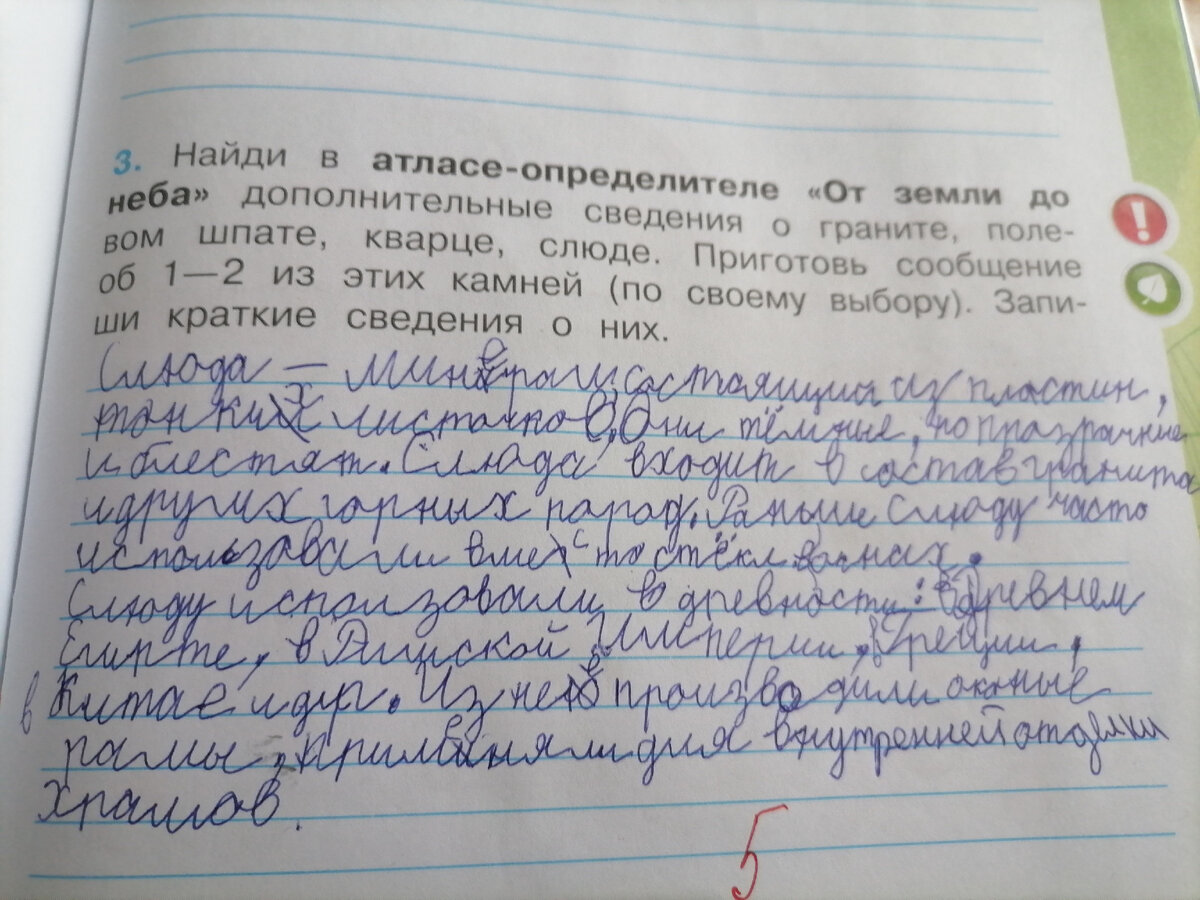 3. Найди в атласе-определителе «От земли до
неба» дополнительные сведения о граните, поле-
вом шпате, кварце, слюде. Приготовь сообщение
об 1—2 из этих камней (по своему выбору). Запи-
ши краткие сведения о них.
Слюда — минерал, состоящий из пластин,
тонких листочков. Они тёмные, но прозрачные
и блестят. Слюда входит в состав гранита
и других горных парод. Раньше слюду часто
использовали вместо стёкл в окнах.
Слюду использовали в древности: в Древнем
Египте, в Римской Империи, в Греции,
в Китае и др. Из неё производили оконные
рамы, применяли для внутренней отделки
храмов.
5